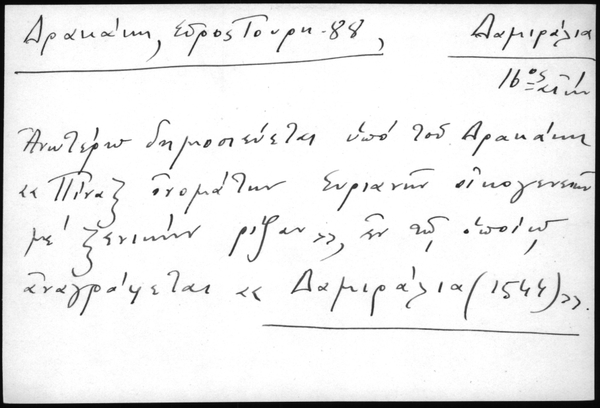 Δρακάκη, Σῦρος Τουρκ. 88, Δαμιράλια
16ος αἰών
Ἀνωτέρω δημοσιεύεται ὑπό τοῦ Δρακάκη
«Πίναξ ὀνομάτων Συριανῶν οἰκογενειῶν
μέ ξενικήν ρίζαν», ἐν τῷ ὁποίῳ
ἀναγράφεται «Δαμιράλια (1544)».